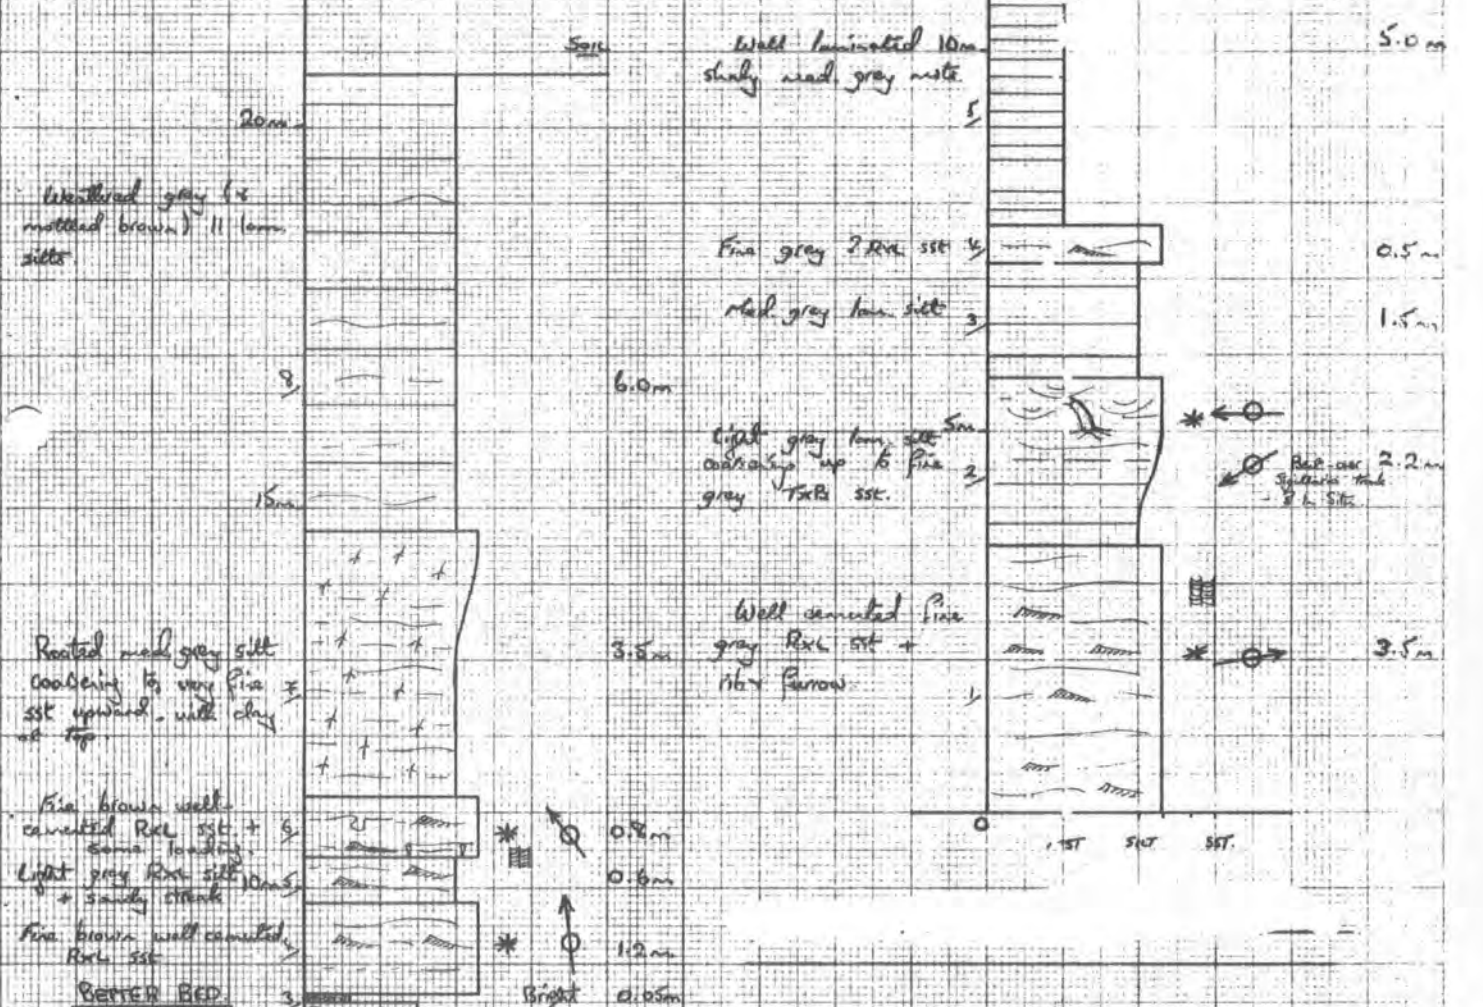 Soil
20m
Weathered grey (&
mottled brown) || lam.
silts.
8
6.0m
15m
Rooted med. grey silt
coarsening to very fine
sst upward, with clay
at top.
7
3.5m
Fine brown well-
cemented RxL sst. +
some loading.
6
0.8m
Light grey RxL silt
+ sandy streak
10m
5
0.6m
Fine brown well cemented
RxL sst
4
1.2m
BETTER BED
3
Bright
0.05m
Well laminated
shaly med. grey mst.
10m
5
5.0m
Fine grey ? RxL sst
4
0.5m
Med. grey lam. silt
3
1.5m
Light grey lam. silt
coarsening up to fine
grey TxB sst.
5m
2
Bent-over
Sigillaria trunk
- ? In Situ
2.2m
Well cemented fine
grey RxL sst +
rib & furrow
1
3.5m
0
MST SILT SST.